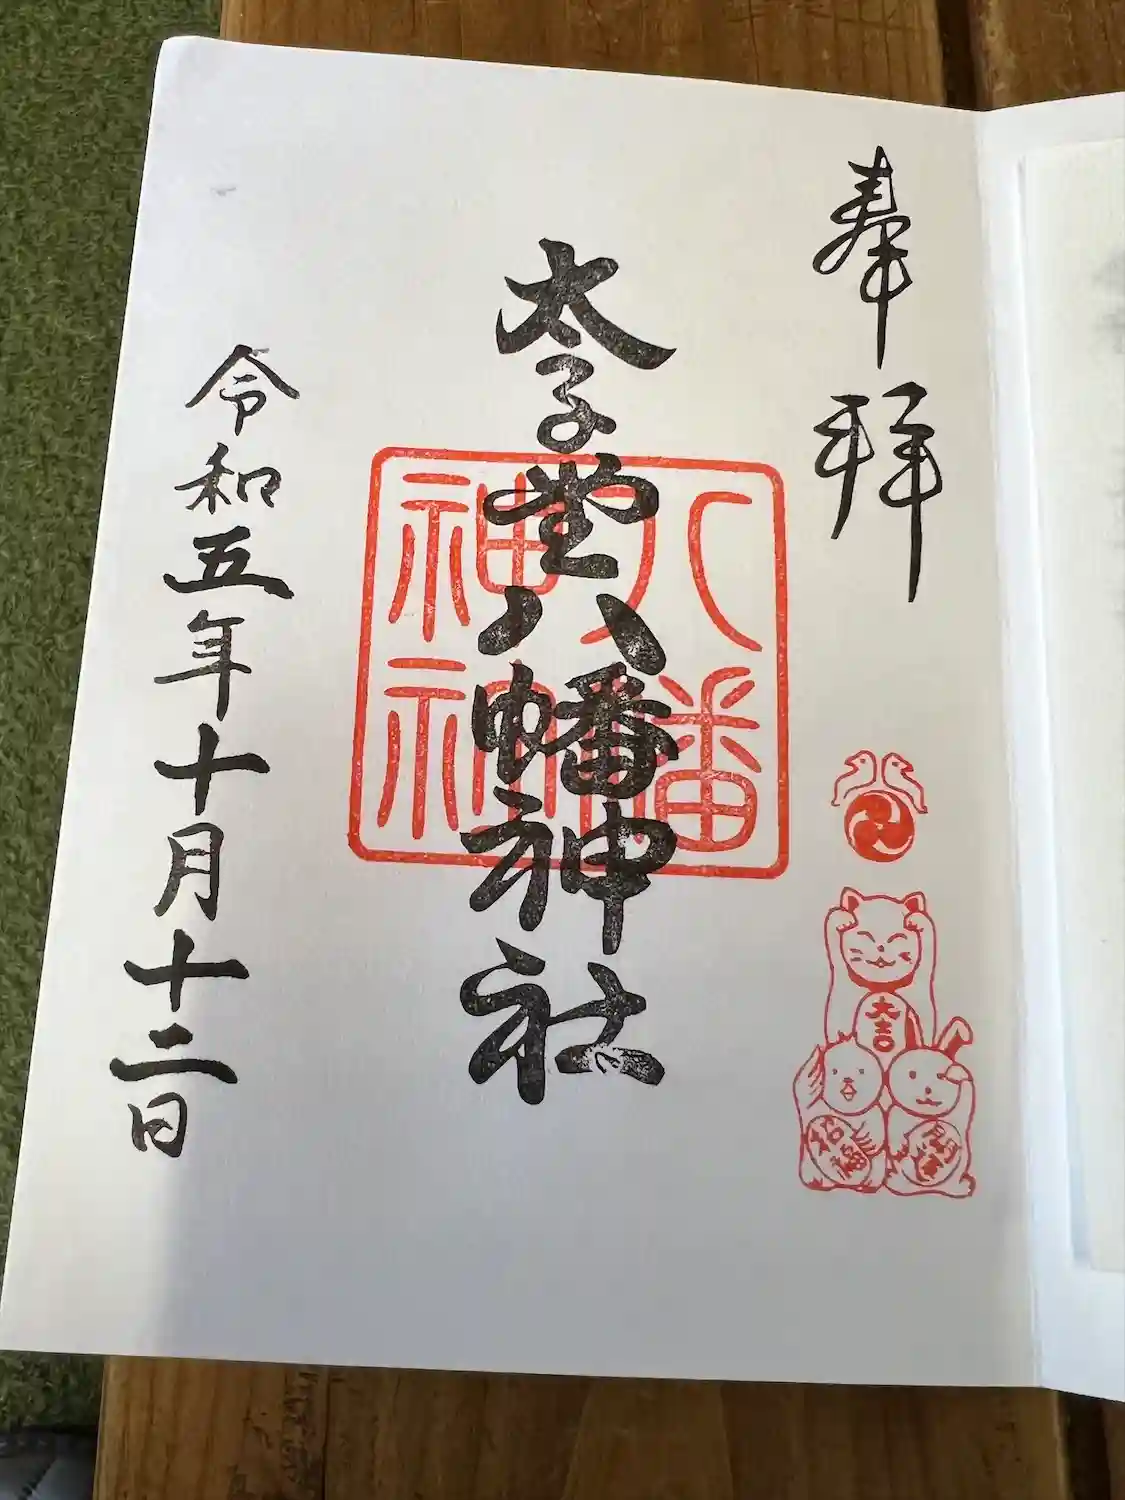 奉拝
大吉
招福
開運
太子堂八幡神社
八幡
神社
令和五年十月十二日